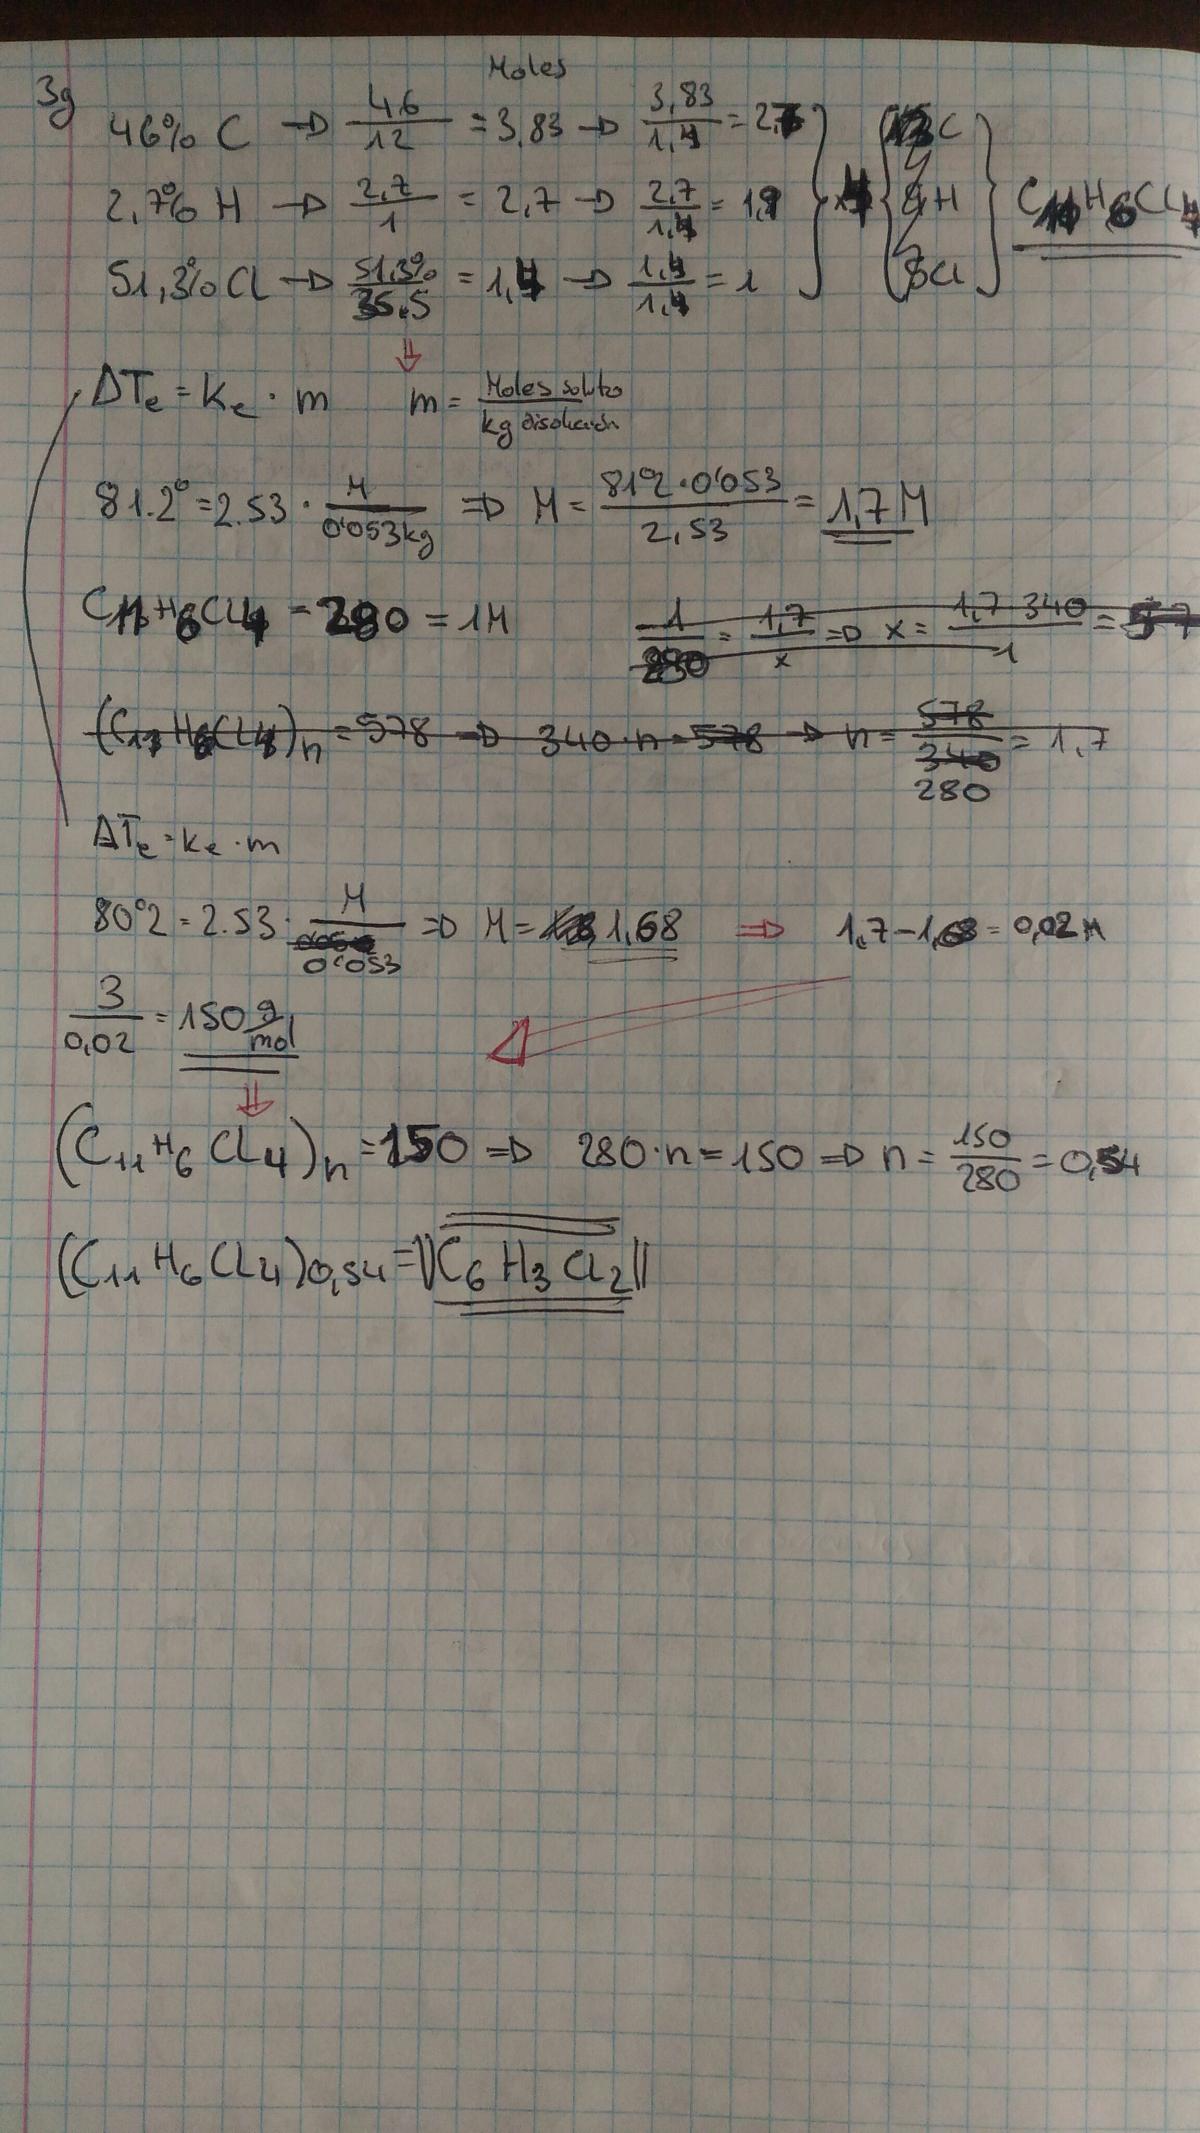 Moles
3g
46% C → 46/12 = 3,83 → 3,83/1,4 = 2,7
2,7% H → 2,7/1 = 2,7 → 2,7/1,4 = 1,9
51,3% Cl → 51,3%/35.5 = 1,4 → 1,4/1,4 = 1
×4 { C H Cl } C11H6Cl4
ΔTe = Ke · m m = Moles soluto/kg disolución
81.2° = 2.53 · M/0'053kg ⇒ M = 81°2 · 0'053/2,53 = 1,7 M
C11H6Cl4 = 280 = 1M
1/280 = 1,7/x ⇒ x = 1,7 340/1 =
(C11H6Cl4)n = 578 ⇒ 340·n = 578 ⇒ n = 578/340 = 1,7
280
ΔTe = Ke · m
80°2 = 2.53 · M/0'053 ⇒ M = 1,68 ⇒ 1,7 - 1,68 = 0,02 M
3/0,02 = 150 g/mol
(C11H6Cl4)n = 150 ⇒ 280·n = 150 ⇒ n = 150/280 = 0,54
(C11H6Cl4)0,54 = ||C6H3Cl2||